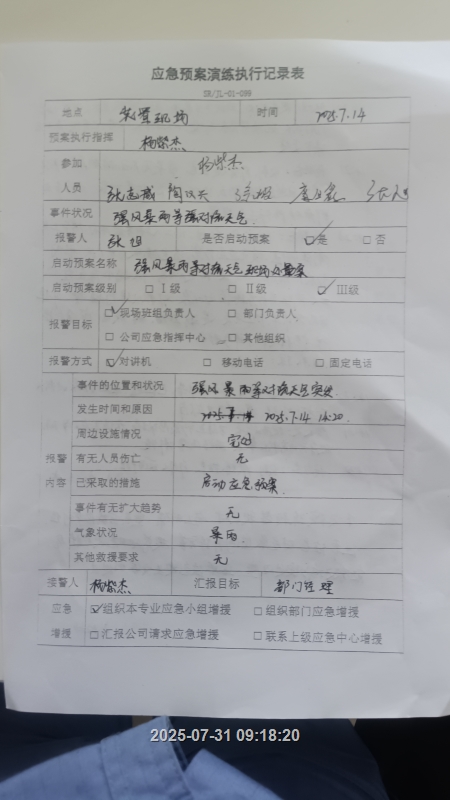 应急预案演练执行记录表
SR/JL-01-099
地点 现场 时间 2025.7.14
预案执行指挥 杨紫杰
参加 杨紫杰
人员 张志威
事件状况 强风暴雨等强对流天气
报警人 张 是否启动预案 ☑是 □否
启动预案名称 强风暴雨等对流天气现场处置案
启动预案级别 □Ⅰ级 □Ⅱ级 ☑Ⅲ级
报警目标 ☑现场班组负责人 □部门负责人
□公司应急指挥中心 □其他组织
报警方式 ☑对讲机 □移动电话 □固定电话
事件的位置和状况 强风暴雨等对流天气突发
发生时间和原因 2025.7.14 14:20
周边设施情况 完好
报警 有无人员伤亡 无
内容 已采取的措施 启动应急预案
事件有无扩大趋势 无
气象状况 暴雨
其他救援要求 无
接警人 杨紫杰 汇报目标 部门经理
应急 ☑组织本专业应急小组增援 □组织部门应急增援
增援 □汇报公司请求应急增援 □联系上级应急中心增援
2025-07-31 09:18:20